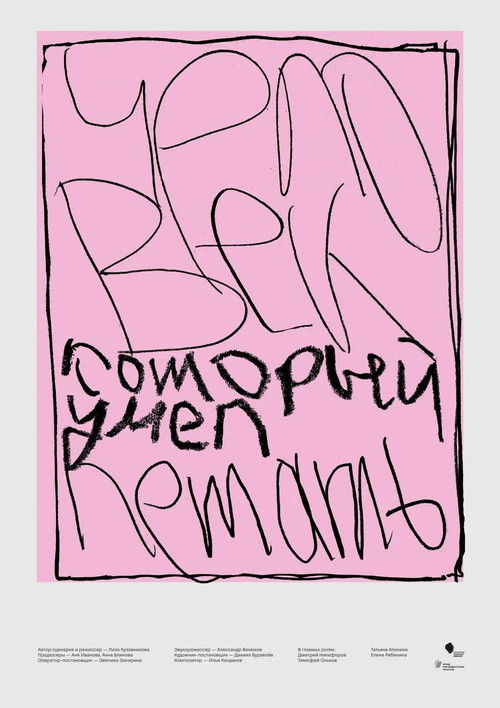 Чело
век
который
умел
летать
Автор сценария и режиссер — Лиза Кузовникова
Продюсеры — Аня Иванова, Анна Блинова
Оператор-постановщик — Эвелина Захарина
Звукорежиссер — Александр Ванюков
Художник-постановщик — Даниил Буравлёв
Композитор — Илья Кандаков
В главных ролях:
Дмитрий Никифоров
Тимофей Ольков
Татьяна Алинина
Елена Рябичина